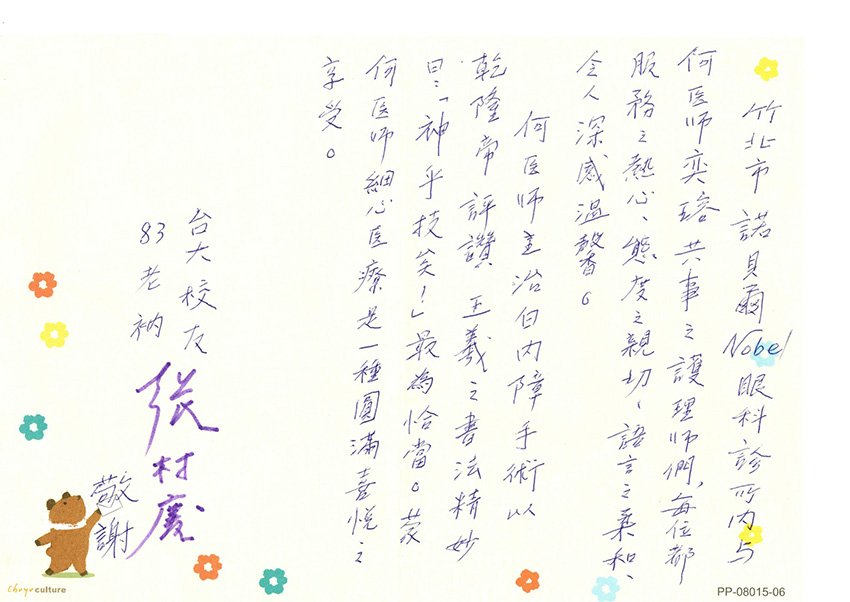 竹北市諾貝爾Nobel眼科診所內与
何医师奕瑢共事之護理师們，每位都
服務之熱心、態度之親切、語言之柔和、
令人深感溫馨。
何医师主治白内障手術以
乾隆帝評讚王羲之書法精妙
曰：「神乎技矣！」最為恰當。蒙
何医师細心医療是一種圓滿喜悅之
享受。
台大校友
83老衲
張村慶
敬謝
culture
PP-08015-06